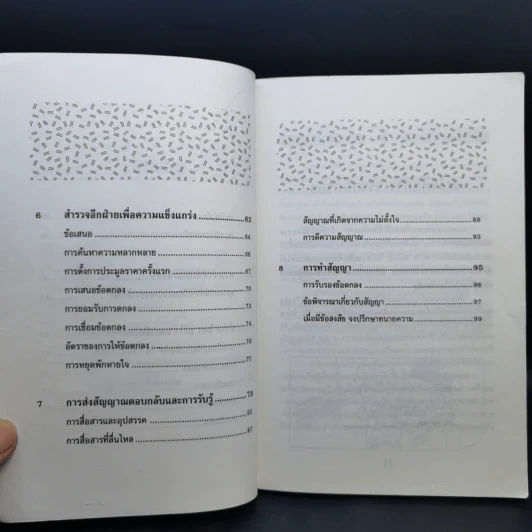 6 สำรวจอีกฝ่ายเพื่อความแข็งแกร่ง 62
ข้อเสนอ 64
การค้นหาความหลากหลาย 66
การตั้งการประมูลราคาครั้งแรก 67
การเสนอข้อตกลง 70
การยอมรับการตกลง 73
การเชื่อมข้อตกลง 74
อัตราของการให้ข้อตกลง 76
การหยุดพักหายใจ 77
7 การส่งสัญญาณตอบกลับและการรับรู้ 79
การสื่อสารและอุปสรรค
การสื่อสารที่ลื่นไหล 87
สัญญาณที่เกิดจากความไม่ตั้งใจ 88
การตีความสัญญาณ 93
8 การทำสัญญา 95
การรับรองข้อตกลง 96
ข้อพิจารณาเกี่ยวกับสัญญา 97
เมื่อมีข้อสงสัย จงปรึกษาทนายความ 99